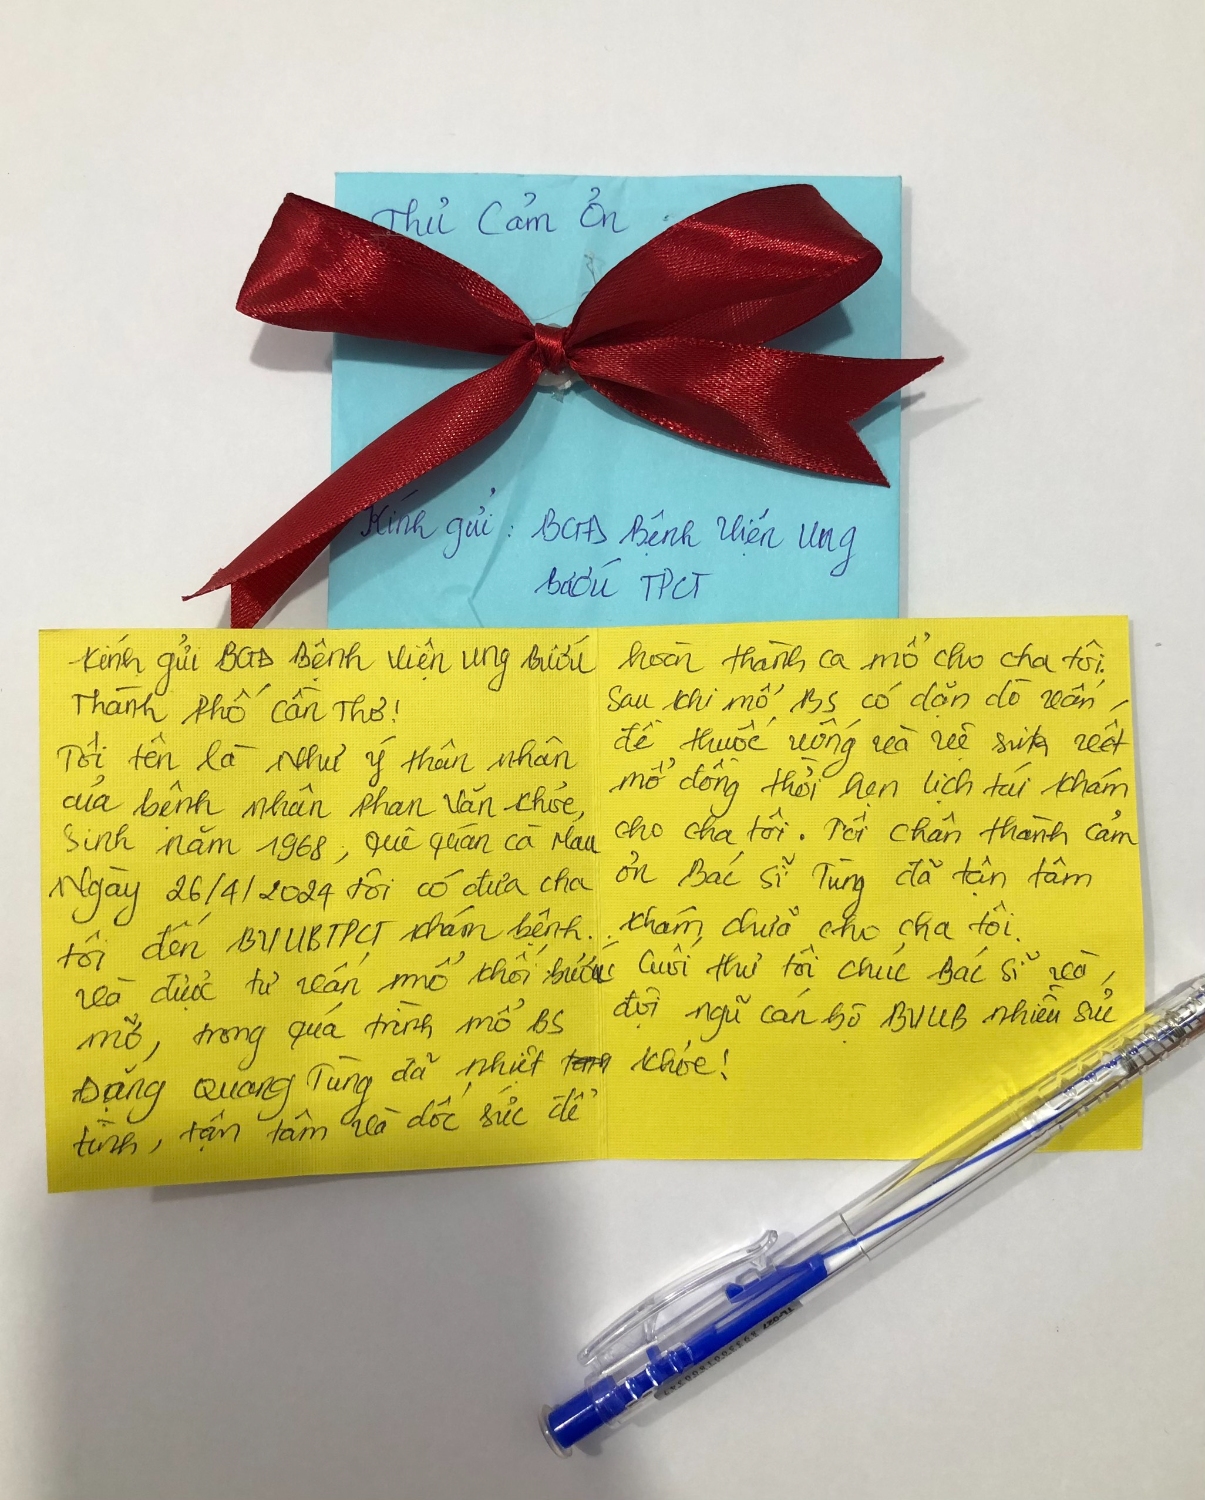 Thư Cảm Ơn
Kính gửi : BGĐ Bệnh Viện Ung
bướu TPCT
Kính gửi BGĐ Bệnh Viện Ung Bướu
Thành Phố Cần Thơ!
Tôi tên là Như ý thân nhân
của bệnh nhân Phan Văn Khỏe,
Sinh năm 1968, quê quán cà Mau
Ngày 26/4/2024 tôi có đưa cha
tôi đến BVUBTPCT khám bệnh.
và được tư vấn mổ khối bướu
mỡ, trong quá trình mổ BS
Đặng Quang Tùng đã nhiệt
tình, tận tâm và dốc sức để
hoàn thành ca mổ cho cha tôi.
Sau khi mổ BS có dặn dò
thuốc uống và vết
mổ đồng thời hẹn lịch tái khám
cho cha tôi. Tôi chân thành cảm
ơn Bác sĩ Tùng đã tận tâm
khám, chữa cho cha tôi.
Cuối thư tôi chúc Bác sĩ và,
đội ngũ cán bộ BVUB nhiều sức
khỏe!
TL-027